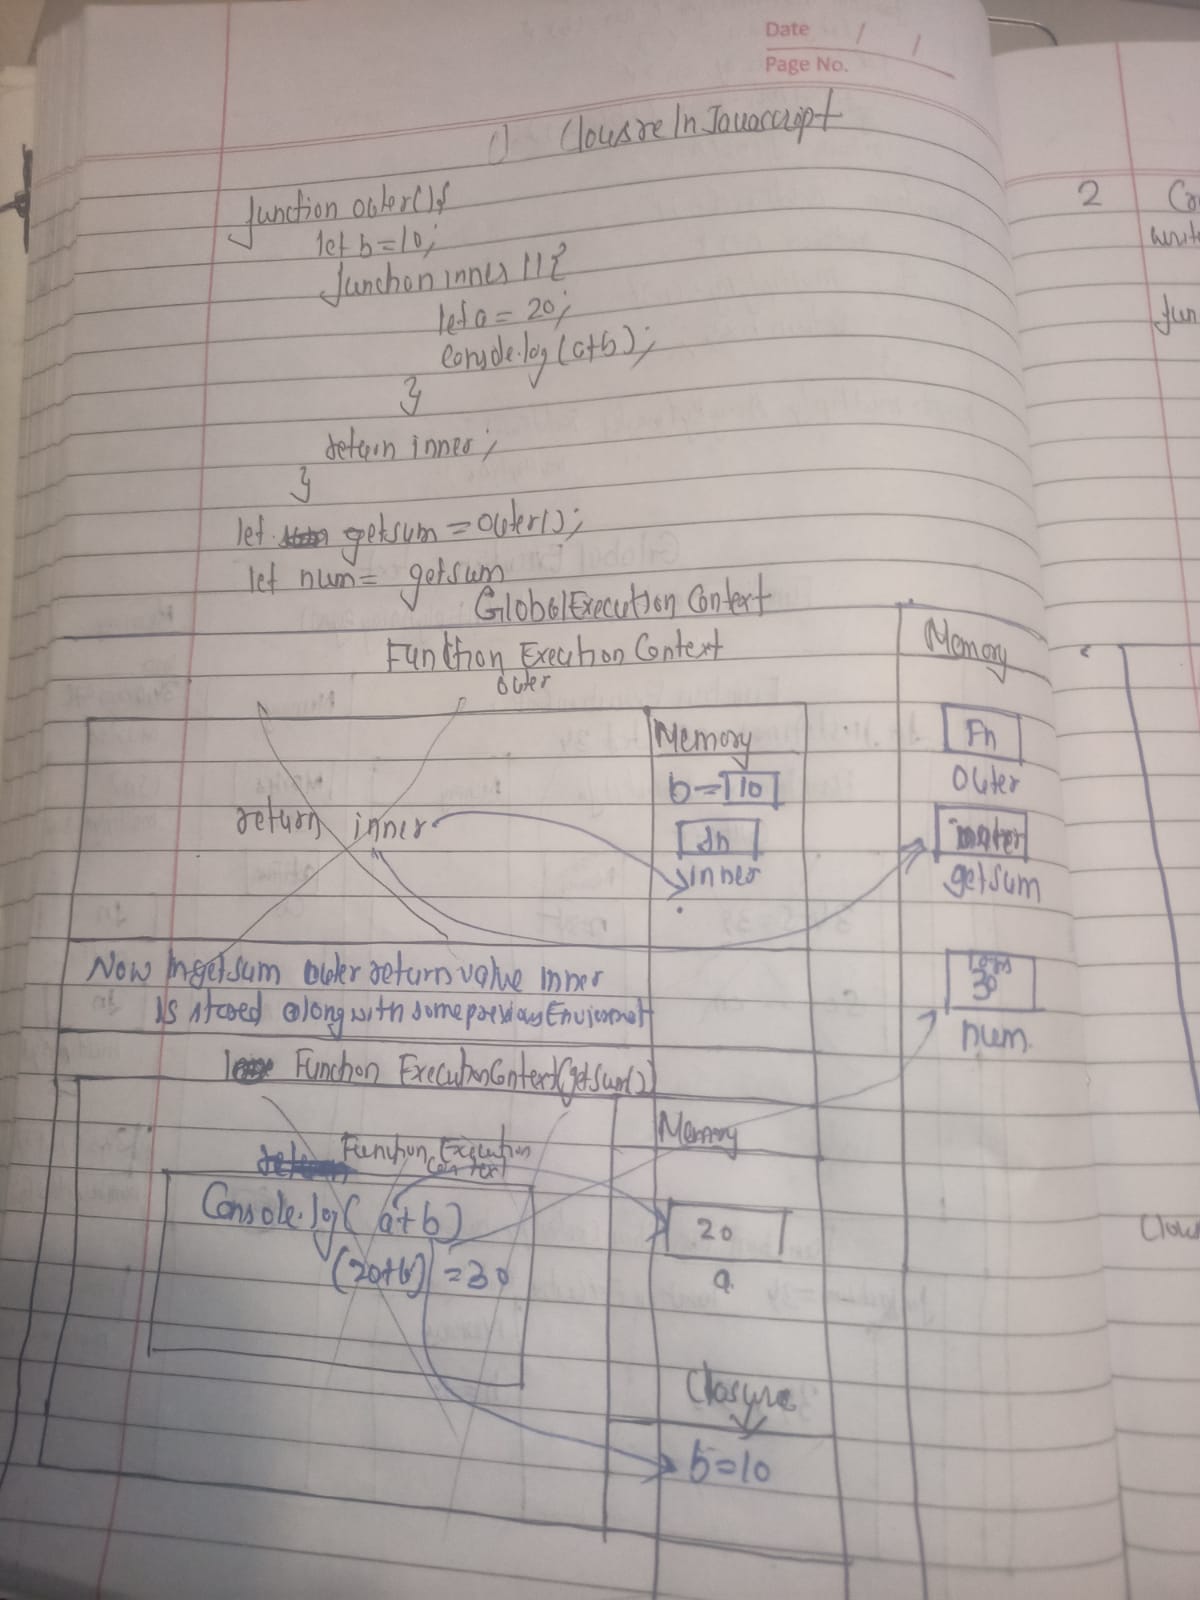 Date / /
Page No.
1) Clousre In Javascript
function outer(){
let b=10;
function inner (){
let a = 20;
console.log(a+b);
}
return inner;
}
let getsum = outer();
let num= getsum
Global Execution Context
Function Execution Context
outer
Memory
Memory
Fn
outer
b=10
return inner
fn
inner
getsum
Now In getsum outer return value inner
Is stored along with some
30
num.
Function Execution Context(getsum())
Memory
Function Execution
Context
Console.log( a+b)
(20+b) =30
20
a
Closure
b=10
2
fun